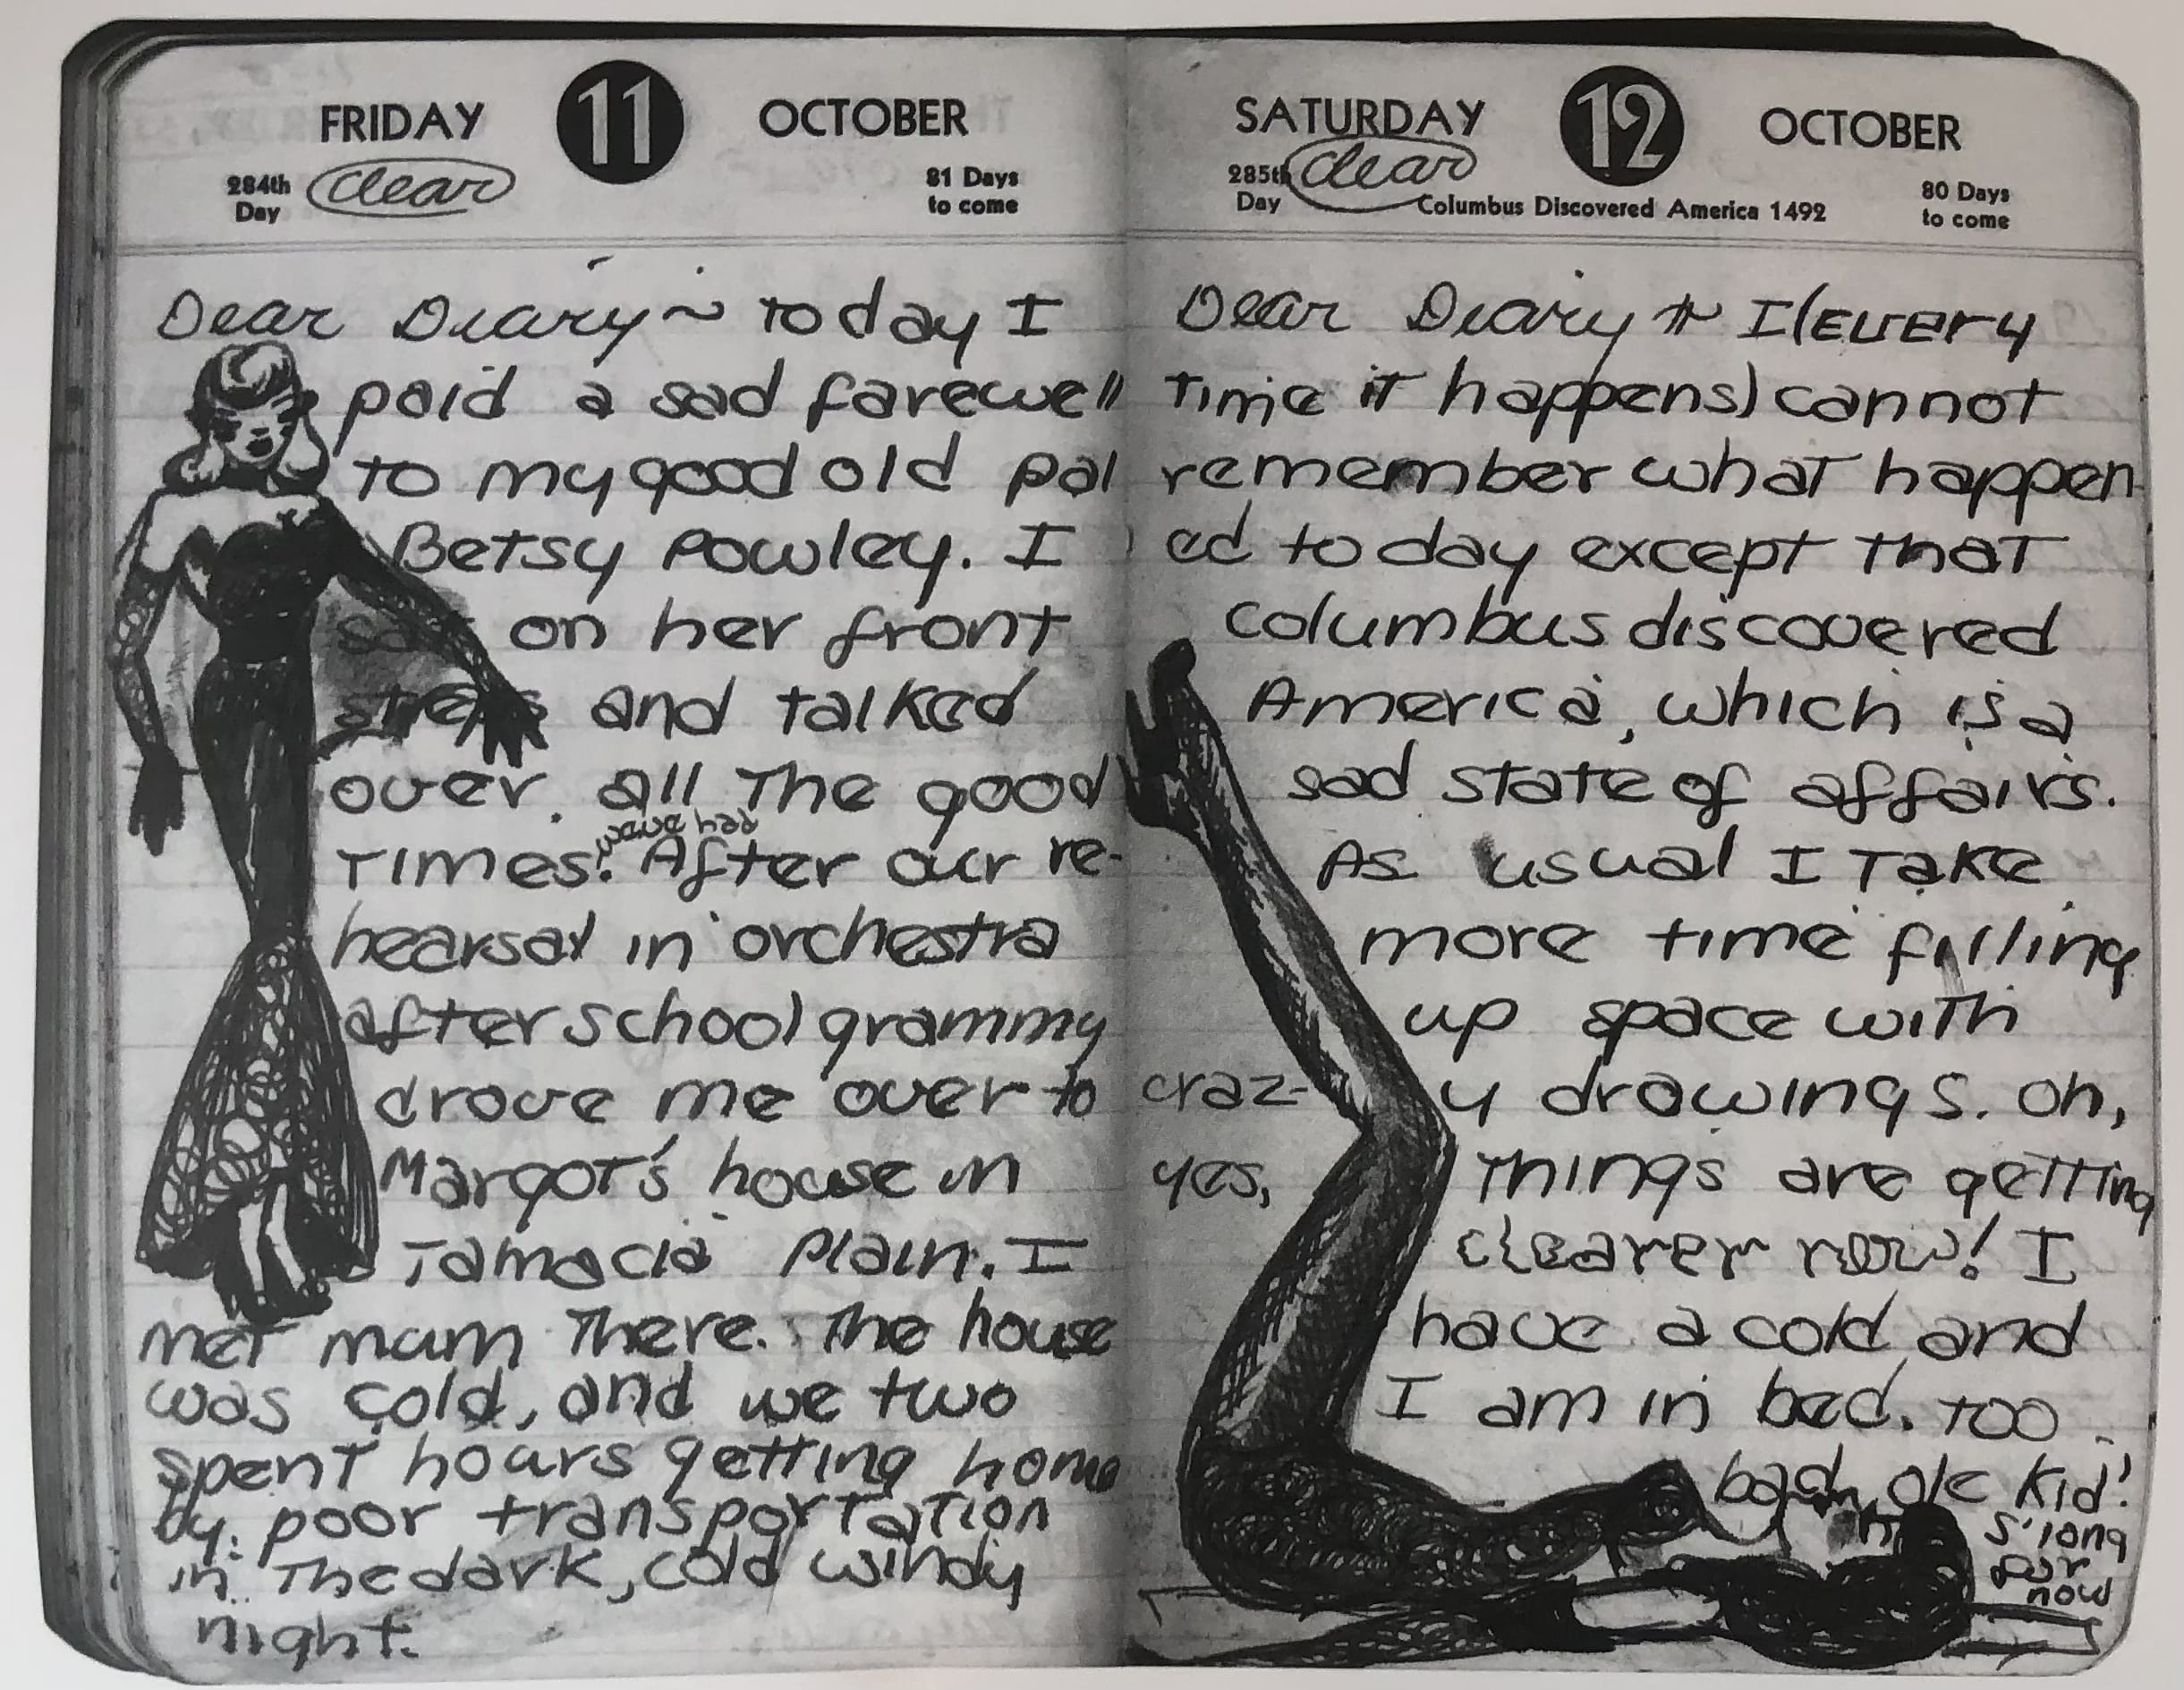 FRIDAY 11 OCTOBER
284th Day clear 81 Days to come
Dear Diary ~ today I
paid a sad farewell
to my good old pal
Betsy Powley. I
sat on her front
steps and talked
over all the good
times we've had! After our re-
hearsal in orchestra
after school grammy
drove me over to
Margot's house in
Jamacia Plain. I
met mum there. The house
was cold, and we two
spent hours getting home
by poor transportation
in the dark, cold windy
night.
SATURDAY 12 OCTOBER
285th Day clear Columbus Discovered America 1492 80 Days to come
Dear Diary ~ I (every
time it happens) cannot
remember what happen-
ed today except that
Columbus discovered
America, which is a
sad state of affairs.
As usual I take
more time filling
up space with
craz- y drawings. Oh,
yes, things are getting
clearer now! I
have a cold and
I am in bed. too
bad, ole kid!
S'long
for
now